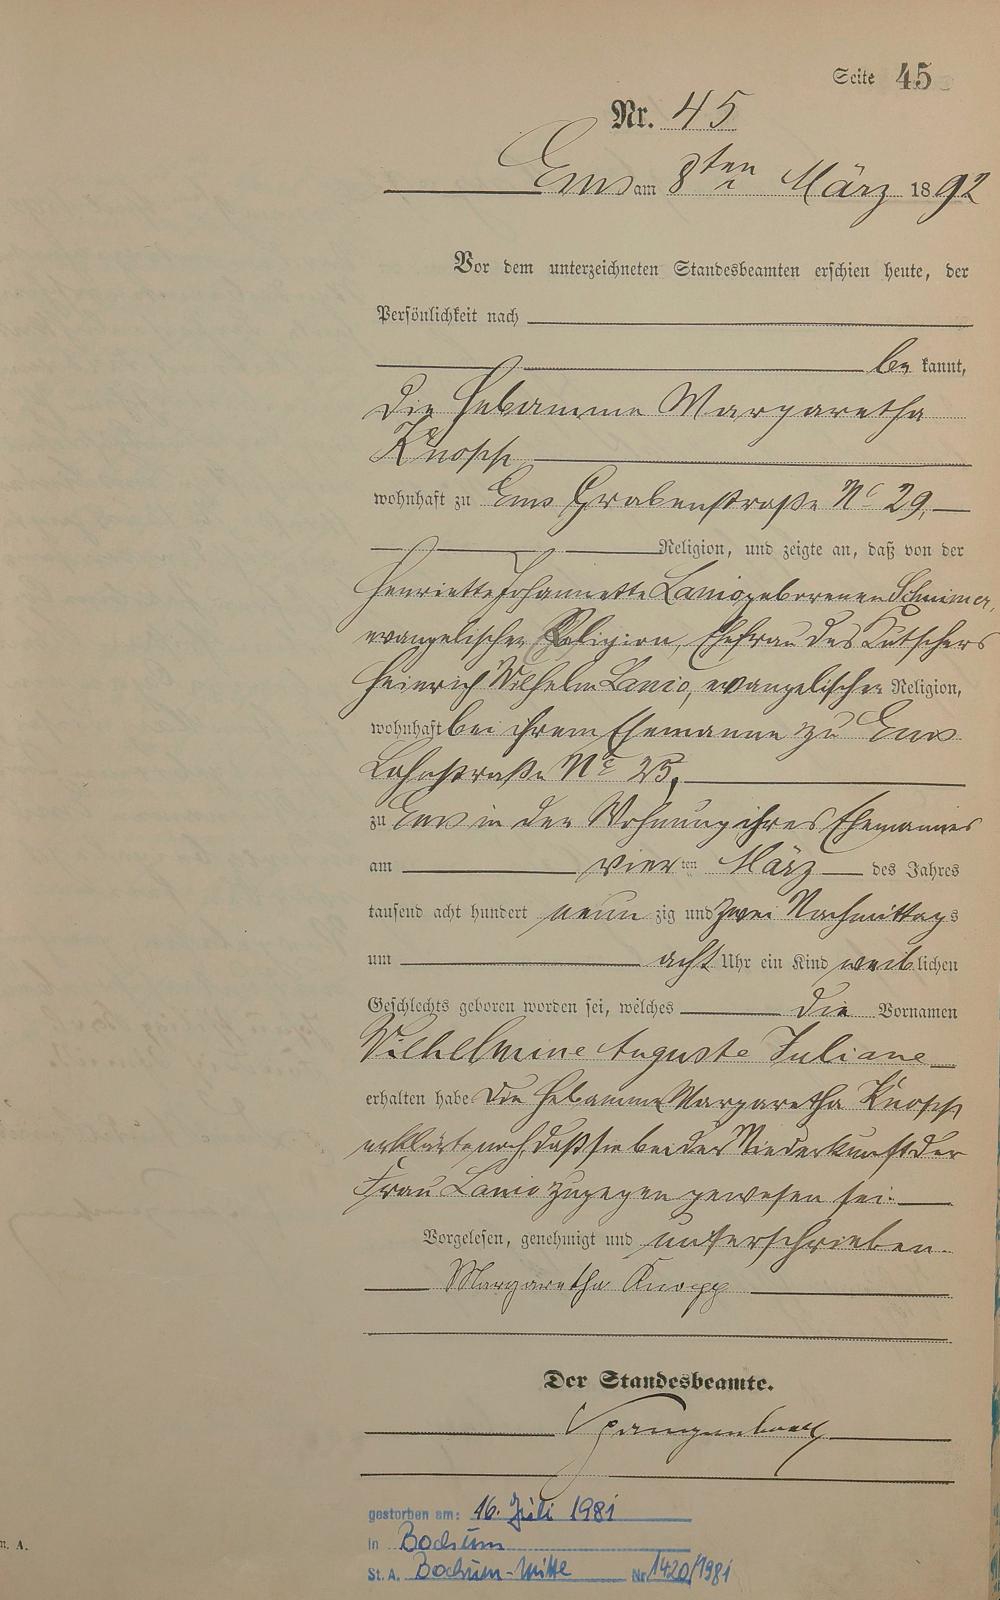 Seite 45
Nr. 45
Ems am 8ten März 1892
Vor dem unterzeichneten Standesbeamten erschien heute, der
Persönlichkeit nach
be kannt,
die Hebamme Margaretha
Knopp
wohnhaft zu Ems Grabenstraße No 29,
Religion, und zeigte an, daß von der
Henriette Johannette Lanio geborenen
evangelischer Religion, Ehefrau des Kutschers
Heinrich Wilhelm Lanio, evangelischer Religion,
wohnhaft bei ihrem Ehemanne zu Ems
Lahnstraße No 25,
zu Ems in der Wohnung ihres Ehemannes
am vier ten März des Jahres
tausend acht hundert neun zig und zwei Nachmittags
um acht Uhr ein Kind weiblichen
Geschlechts geboren worden sei, welches die Vornamen
Wilhelmine Auguste Juliane
erhalten habe Die Hebamme Margaretha Knopp
erklärte noch, daß sie bei der Niederkunft der
Frau Lanio zugegen gewesen sei.
Vorgelesen, genehmigt und unterschrieben.
Margaretha Knopp
Der Standesbeamte.
gestorben am: 16. Juli 1981
in Bochum
St. A. Bochum-Mitte Nr 1420/1981
n. A.